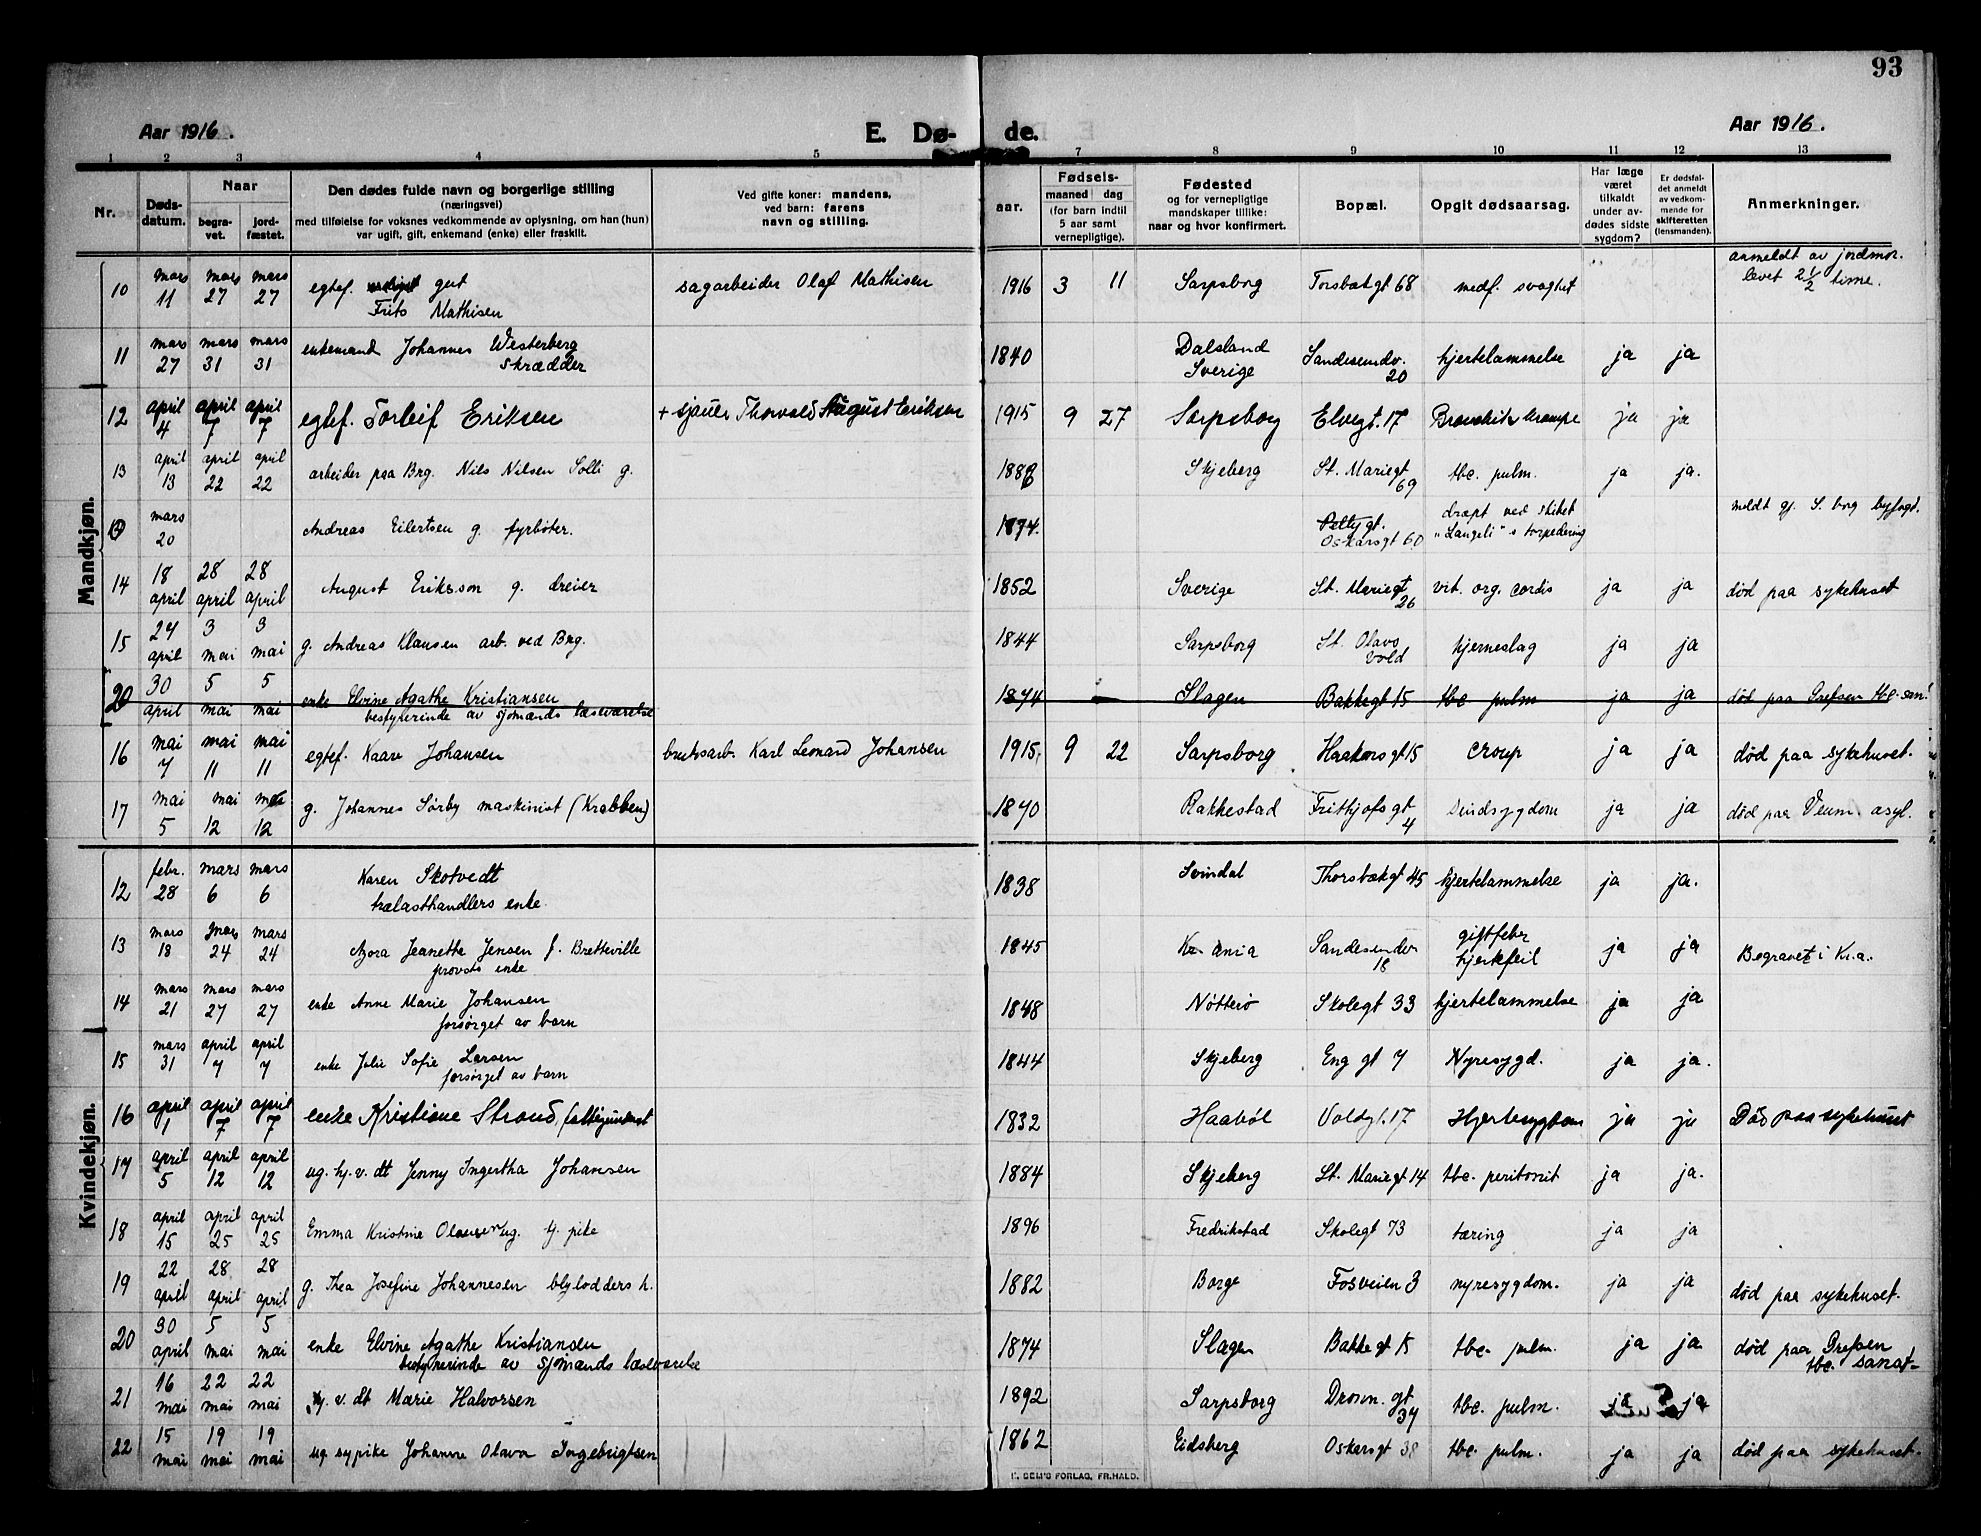 93
Aar 1916.
E. Dø-
de.
Aar 1916.
1 2 3 4 5 7 8 9 10 11 12 13
Nr.
Døds-
datum.
Naar
begra-
vet.
jord-
fæstet.
Den dødes fulde navn og borgerlige stilling
(næringsvei)
med tilføielse for voksnes vedkommende av oplysning, om han (hun)
var ugift, gift, enkemand (enke) eller fraskilt.
Ved gifte koner: mandens,
ved barn: farens
navn og stilling.
Fødsels-
aar.
maaned dag
(for barn indtil
5 aar samt
vernepligtige).
Fødested
og for vernepligtige
mandskaper tillike:
naar og hvor konfirmert.
Bopæl.
Opgit dødsaarsag.
Har læge
været
tilkaldt
under av-
dødes sidste
sygdom?
Er dødsfal-
det anmeldt
av vedkom-
mende for
skifteretten
(lensmanden).
Anmerkninger.
Mandkjøn.
10 mars 11 mars 27 mars 27 egtef. gut
Frits Mathisen
sagarbeider Olaf Mathisen 1916 3 11 Sarpsborg Torsbækgt 68 medf. svaghet
anmeldt av jordmor.
levet 2 1/2 time.
11 mars 27 mars 31 mars 31 enkemand Johannes Westerberg
skrædder
1840 Dalsland
Sverige
Sandesundv.
20
hjertelammelse ja ja
12 april 4 april 7 april 7 egtef. Torleif Eriksen + sjauer Thorvald August Eriksen 1915 9 27 Sarpsborg Elvegt. 17 ja ja
13 april 13 april 22 april 22 arbeider paa Brg. Nils Nilsen Solli g. 1886 Skjeberg St. Mariegt
69
tbc. pulm. ja ja.
mars 20 Andreas Eilertsen g. fyrbøter. 1874.
Oskarsgt 60
dræpt ved skibet
"Langeli"s torpedering
meldt gj. S.borg byfogd.
14 18 april 28 april 28 april August Eriksson g. dreier 1852 Sverige St. Mariegt
26
vit. org. cordis ja ja død paa sykehuset
15 24 april 3 mai 3 mai g. Andreas Klausen arb. ved Brg. 1844 Sarpsborg St. Olavs
vold
hjerneslag ja ja
20 30 april 5 mai 5 mai enke Elvine Agathe Kristiansen
bestyrerinde av sjømands læseværelse
1874 Slagen Bakkegt 15 tbc pulm ja ja død paa Grefsen tbc-san!
16 mai 7 mai 11 mai 11 egtef. Kaare Johansen bruksarb. Karl Leonard Johansen 1915 9 22 Sarpsborg Haakonsgt 15 croup ja ja død paa sykehuset.
17 mai 5 mai 12 mai 12 g. Johannes Sørby maskinist (Krabben) 1870 Rakkestad Frithjofsgt
4
sindsygdom ja ja død paa Veum asyl.
Kvindekjøn.
12 febr. 28 mars 6 mars 6 Karen Skotvedt
trælasthandlers enke.
1838 Svindal Thorsbækgt 45 hjertelammelse ja ja.
13 mars 18 mars 24 mars 24 Azora Jeanette Jensen f. Bretteville
provsts enke
1845 Kr. ania Sandesundv
18
giftfeber
hjertefeil
ja ja Begravet i Kr.a.
14 mars 21 mars 27 mars 27 enke Anne Marie Johansen
forsørget av barn
1848 Nøtterø Skolegt 33 hjertelammelse ja ja
15 mars 31 april 7 april 7 enke Julie Sofie Larsen
forsørget av barn
1844 Skjeberg Eng gt 7 Nyresygd. ja ja.
16 april 1 april 7 april 7 enke Kristiane Strand, fattigunderst 1832 Haabøl Voldgt. 17 Hjertesygdom ja ja Død paa sykehuset
17 april 5 april 12 april 12 ug. hj. v. dt Jenny Ingertha Johansen 1884 Skjeberg St. Mariegt 14 tbc. peritonit ja ja.
18 april 15 april 25 april 25 Emma Kristine Olausen ug. tj. pike 1896 Fredrikstad Skolegt 73 tæring ja ja
19 22 april 28 april 28 april g. Thea Josefine Johannesen blylodders h. 1882 Borge Fosveien 3 nyresygdom. ja ja død paa sykehuset.
20 30 april 5 mai 5 mai enke Elvine Agathe Kristiansen
bestyrerinde av sjømands læseværelse
1874 Slagen Bakkegt 15 tbc. pulm. ja ja død paa Grefsen
tbc. sanat-
21 16 mai 22 mai 22 mai hj. v. dt Marie Halvorsen 1892 Sarpsborg Dronn. gt
34
tbc. pulm. ja ja
22 15 mai 19 mai 19 mai ug sypike Johanne Olava Ingebrigtsen 1862 Eidsberg Oskarsgt 38 tbc. pulm. ja ja død paa sykehuset.
SEM'S FORLAG, FR.HALD.